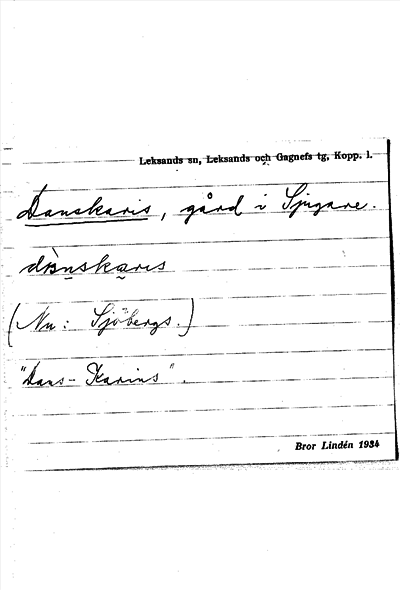 Leksands sn, Leksands och Gagnefs tg, Kopp. l.
Danskaris, gård i Sjugare.
(Nu: Sjöbergs.)
"Dans-Karins".
Bror Lindén 1934